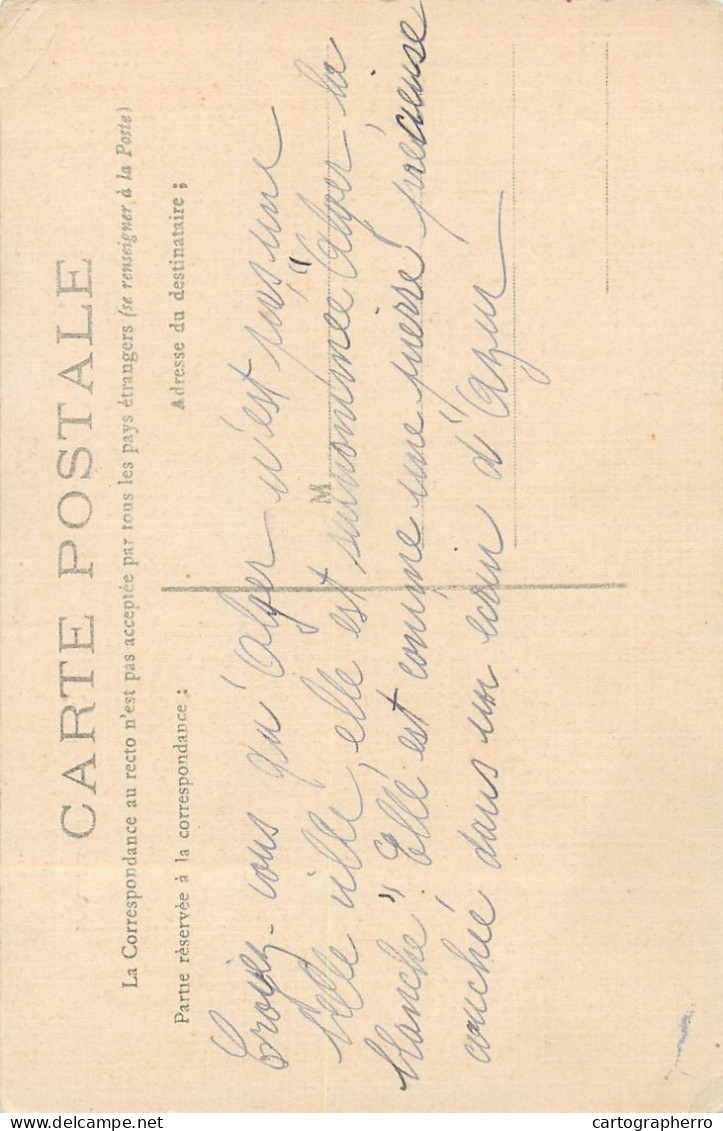 CARTE POSTALE
La Correspondance au recto n'est pas acceptée par tous les pays étrangers (se renseigner à la Poste)
Partie réservée à la correspondance :
Adresse du destinataire :
M
Croyez-vous qu'Alger n'est pas une
belle ville, elle est surnommée "Alger la
blanche" Elle est comme une pierre précieuse
couchée dans un écrin d'Azur
cartographerro